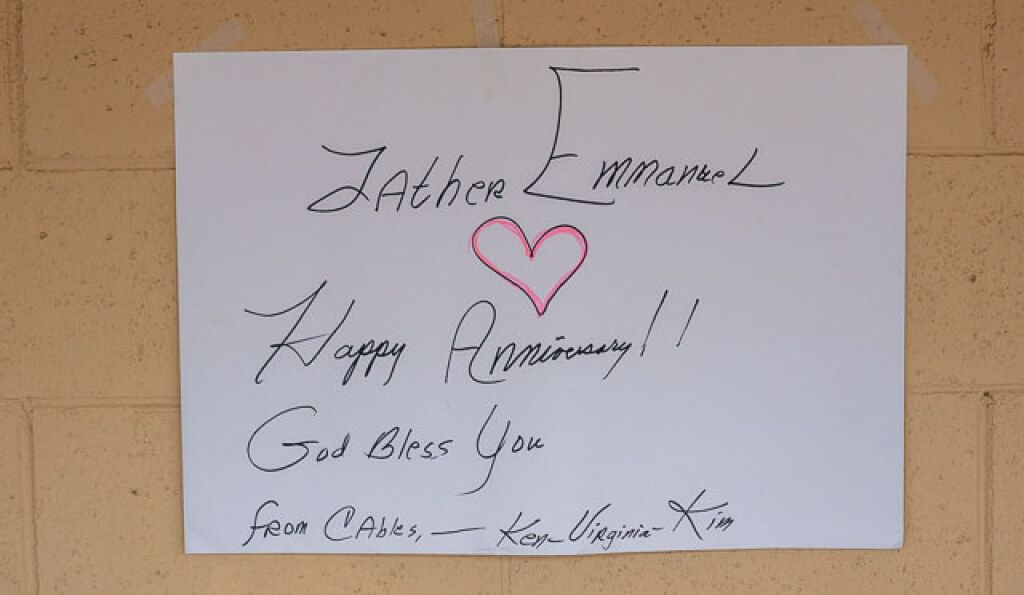 Father Emmanuel
Happy Anniversary!!
God Bless You
from CAbles, — Ken-Virginia-Kim